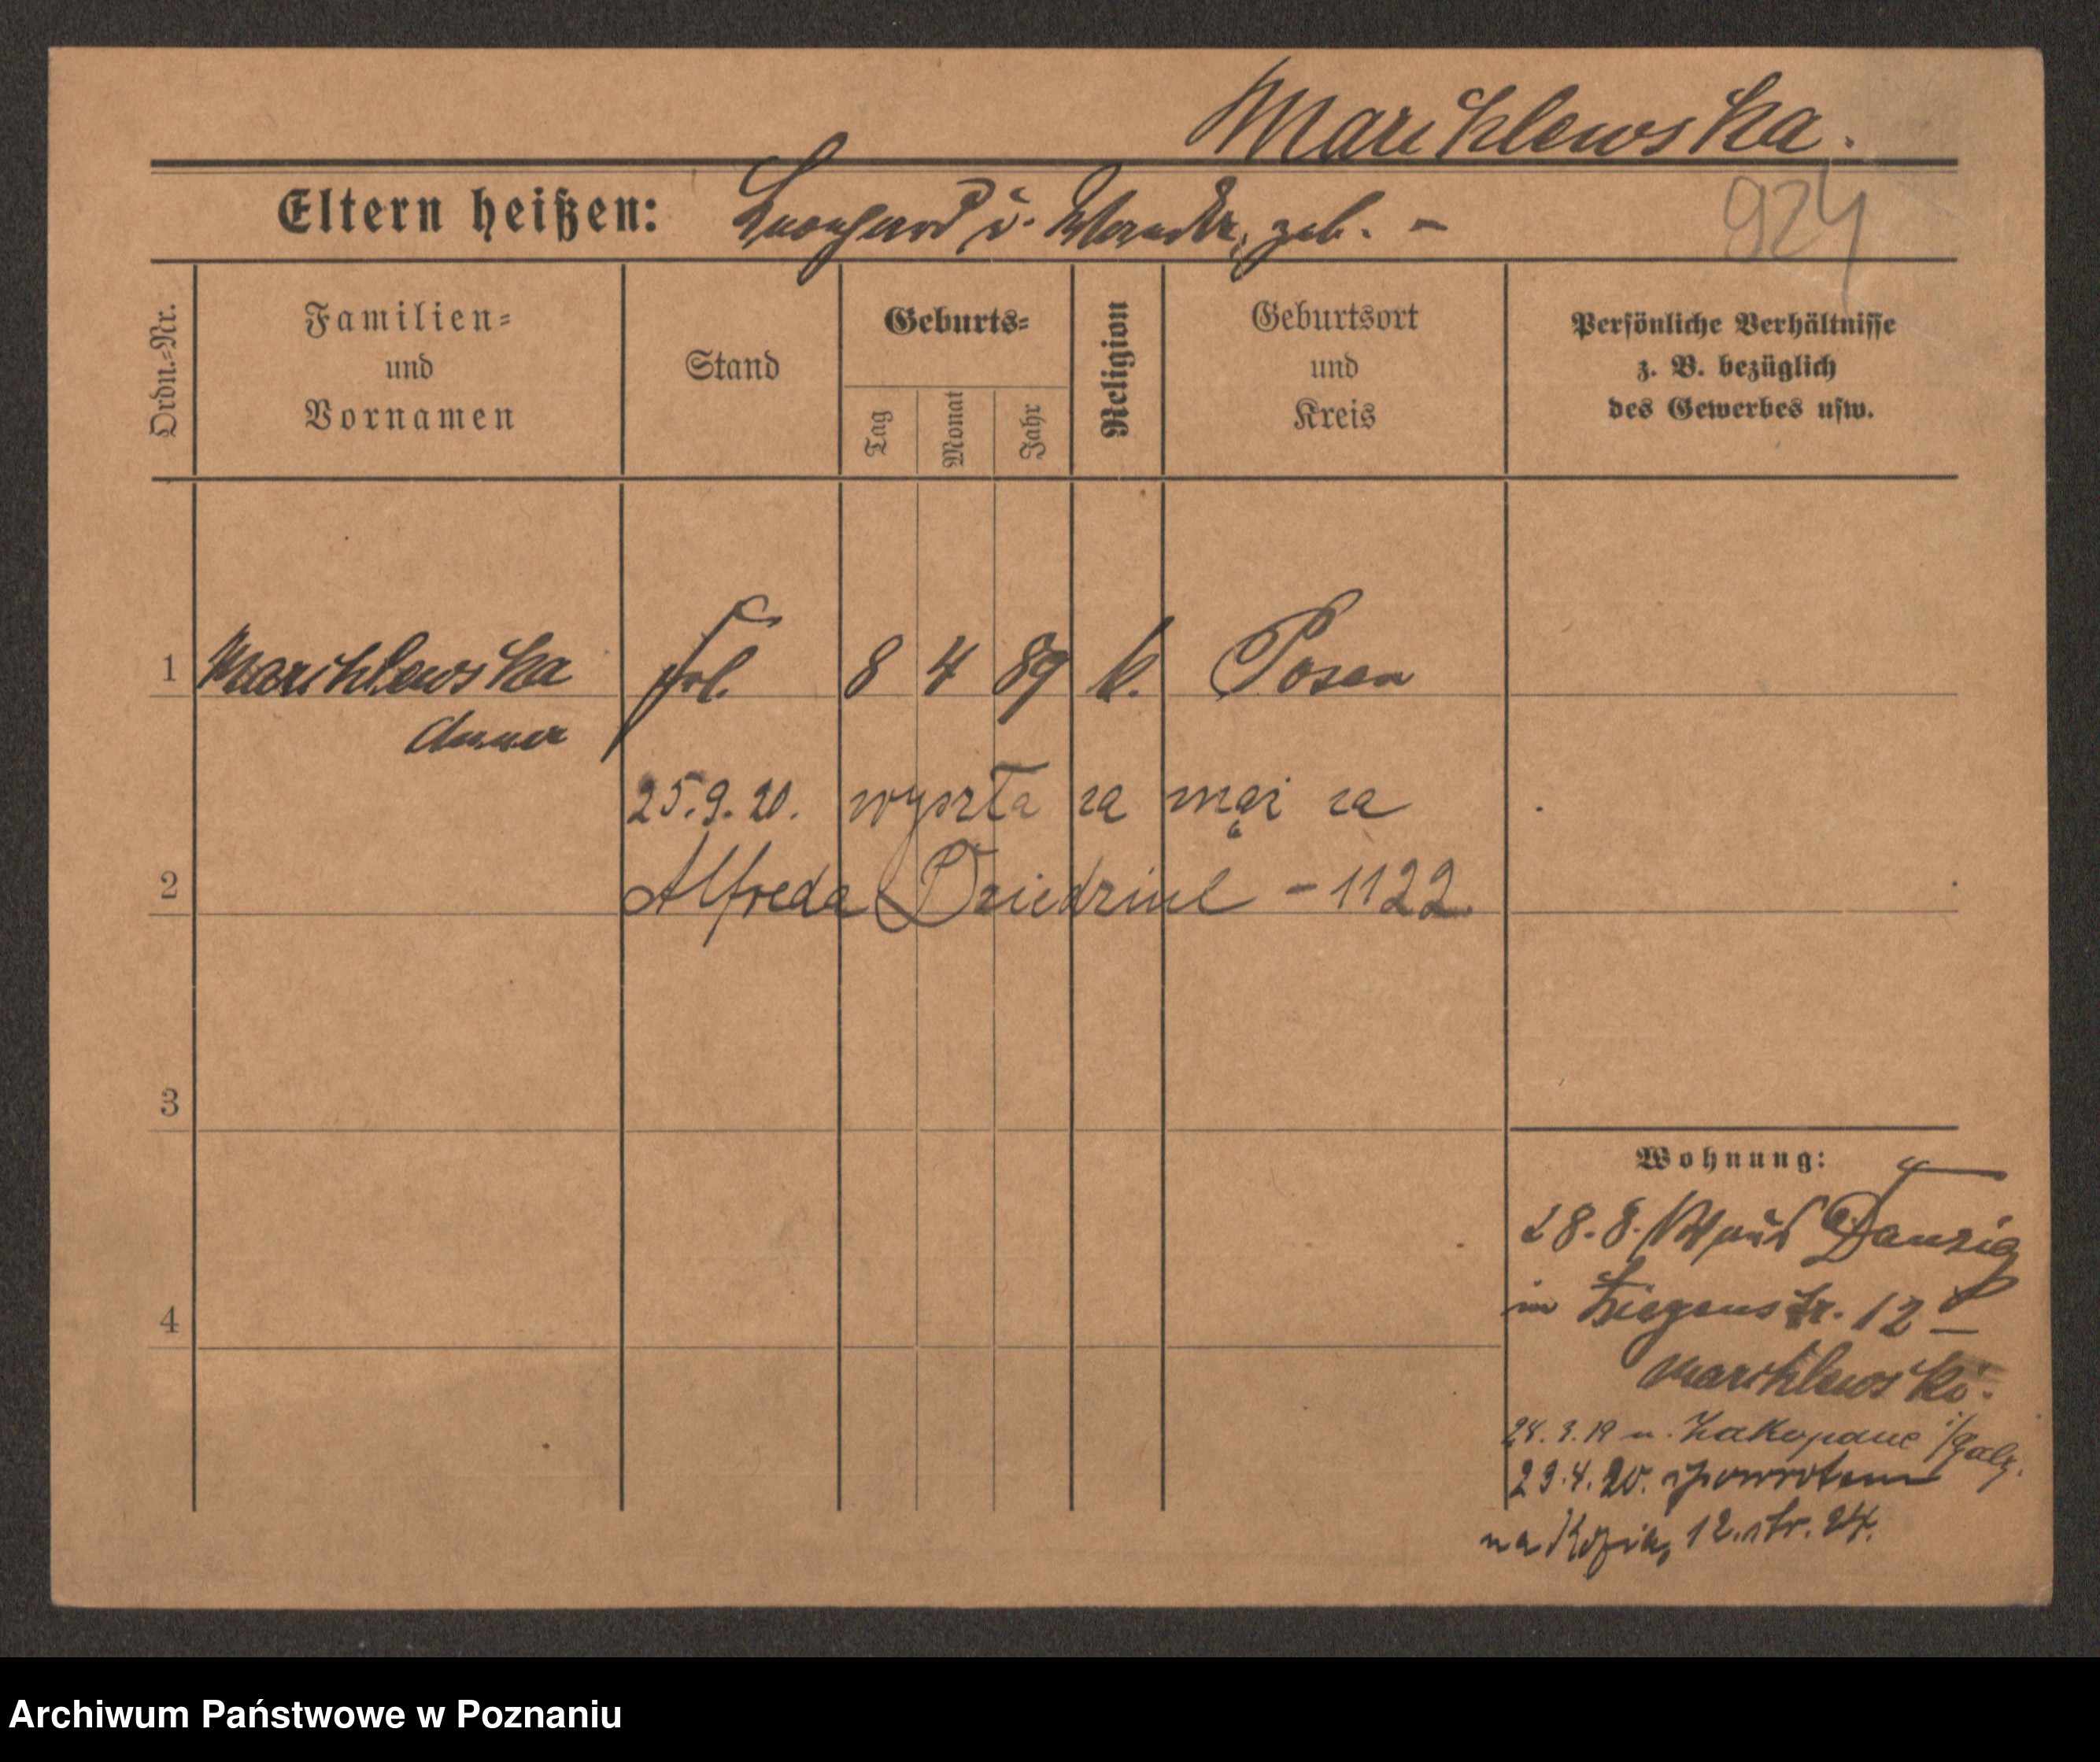 Marchlewska.
Eltern heißen: Leonhard u. Wanda, geb. –
924
Ordn.=Nr.
Familien=
und
Vornamen
Stand
Geburts=
Tag
Monat
Jahr
Religion
Geburtsort
und
Kreis
Persönliche Verhältnisse
z. B. bezüglich
des Gewerbes usw.
1 Marchlewska Frl. 8 4 89 k. Posen
Anna
25.9.20. wyszła za mąż za
2 Alfreda Dziedziul – 1122
3
4
Wohnung:
28.8. aus Danzig
in Ziegenstr. 12
Marchlewski.
24.3.19 n. Zakopane i/Galz.
23.4.20. spowrotem
na Kozią 12. str. 24.
Archiwum Państwowe w Poznaniu